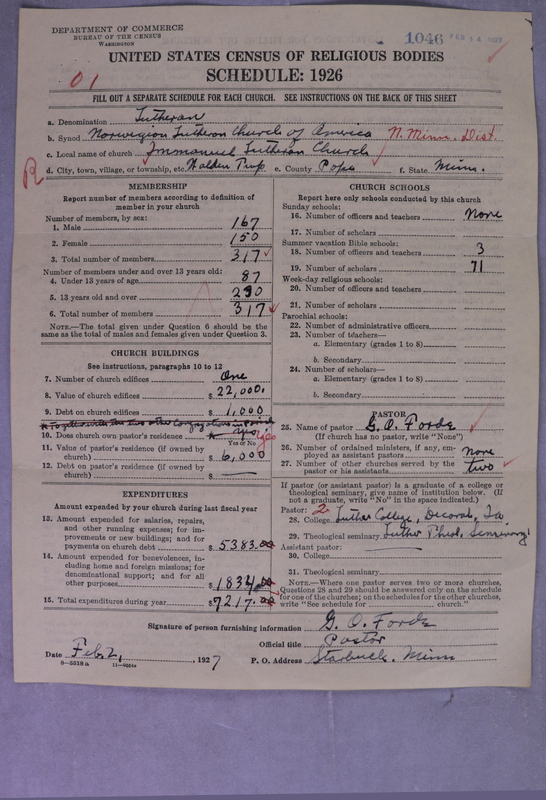 DEPARTMENT OF COMMERCE
BUREAU OF THE CENSUS
WASHINGTON
1046 FEB 14 1927
UNITED STATES CENSUS OF RELIGIOUS BODIES
SCHEDULE: 1926
01
FILL OUT A SEPARATE SCHEDULE FOR EACH CHURCH. SEE INSTRUCTIONS ON THE BACK OF THIS SHEET
a. Denomination Lutheran
b. Synod Norwegian Lutheran Church of America N. Minn. Dist.
c. Local name of church Immanuel Lutheran Church
R
d. City, town, village, or township, etc. Walden Twp e. County Pope f. State Minn.
MEMBERSHIP
Report number of members according to definition of member in your church
Number of members, by sex:
1. Male 167
2. Female 150
3. Total number of members 317
Number of members under and over 13 years old:
4. Under 13 years of age 87
5. 13 years old and over 230
6. Total number of members 317
NOTE.—The total given under Question 6 should be the same as the total of males and females given under Question 3.
CHURCH BUILDINGS
See instructions, paragraphs 10 to 12
7. Number of church edifices One
8. Value of church edifices $ 22,000.
9. Debt on church edifices $ 1,000
10. Does church own pastor's residence? yes
Yes or No
11. Value of pastor's residence (if owned by church) $ 6,000
12. Debt on pastor's residence (if owned by church) $
EXPENDITURES
Amount expended by your church during last fiscal year
13. Amount expended for salaries, repairs, and other running expenses; for improvements or new buildings; and for payments on church debt $ 5383.00
14. Amount expended for benevolences, including home and foreign missions; for denominational support; and for all other purposes $ 1834.00
15. Total expenditures during year $ 7217.00
CHURCH SCHOOLS
Report here only schools conducted by this church
Sunday schools:
16. Number of officers and teachers None
17. Number of scholars
Summer vacation Bible schools:
18. Number of officers and teachers 3
19. Number of scholars 71
Week-day religious schools:
20. Number of officers and teachers
21. Number of scholars
Parochial schools:
22. Number of administrative officers
23. Number of teachers—
a. Elementary (grades 1 to 8)
b. Secondary
24. Number of scholars—
a. Elementary (grades 1 to 8)
b. Secondary
PASTOR
25. Name of pastor G. O. Forde
(If church has no pastor, write "None")
26. Number of ordained ministers, if any, employed as assistant pastors none
27. Number of other churches served by the pastor or his assistants two
If pastor (or assistant pastor) is a graduate of a college or theological seminary, give name of institution below. (If not a graduate, write "No" in the space indicated.)
Pastor: 2
28. College Luther College, Decorah, Ia.
29. Theological seminary Luther Theol. Seminary
Assistant pastor:
30. College
31. Theological seminary
NOTE.—Where one pastor serves two or more churches, Questions 28 and 29 should be answered only on the schedule for one of the churches; on the schedules for the other churches, write "See schedule for church."
Signature of person furnishing information G. O. Forde
Official title Pastor
Date Feb. 2, 1927 P. O. Address Starbuck, Minn
8—5518 a